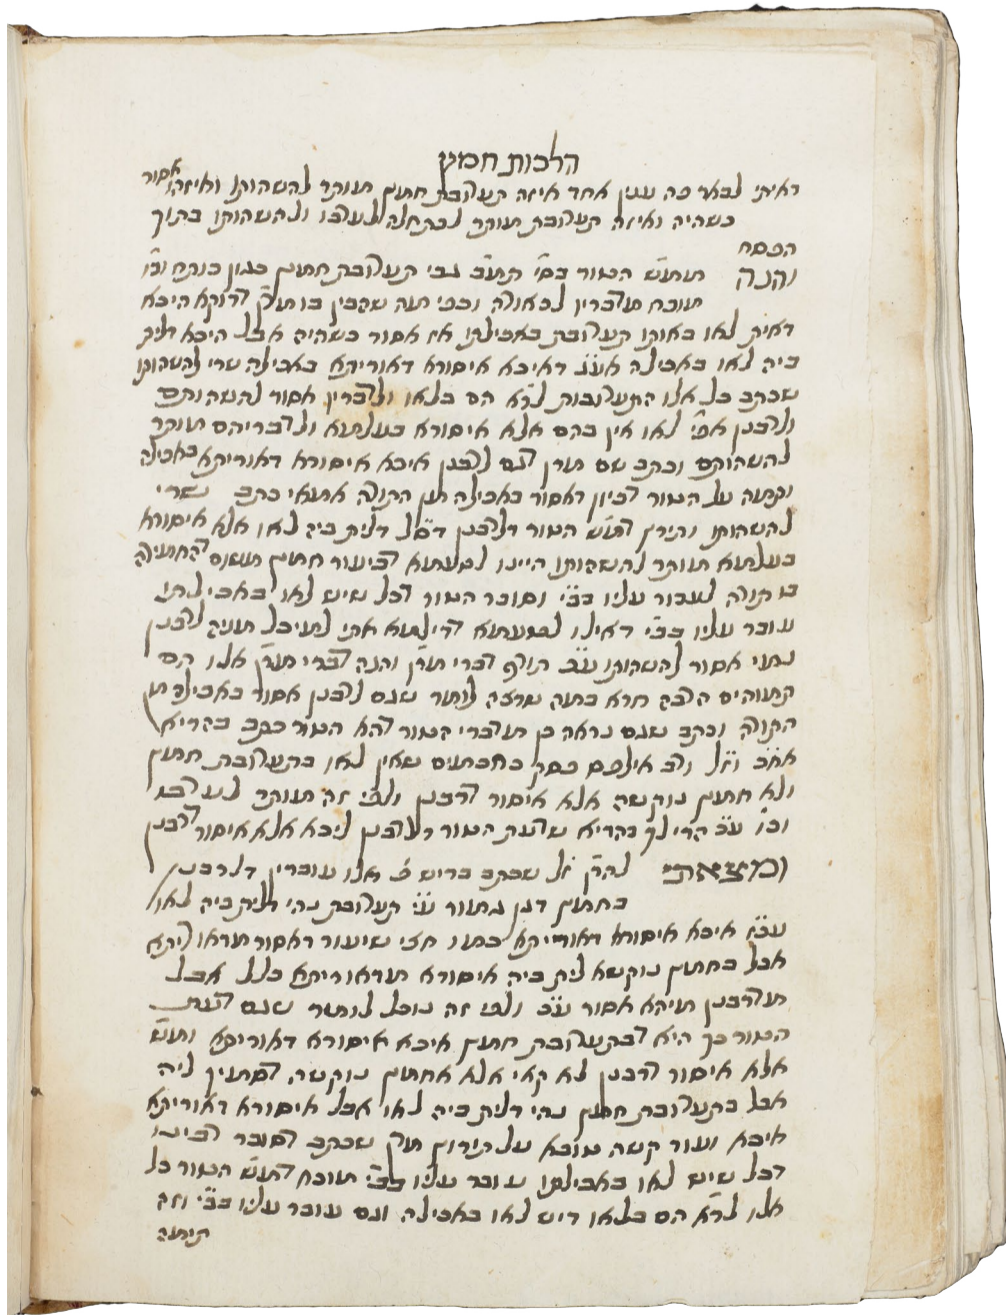 הלכות חמץ
ראיתי לבאר פה ענין אחד איזה תערובת חמץ מותר להשהותו ואיזהו אסור
כשהיה ואיזה תערובת מותר לכתחלה לערבו ולהשהותו בתוך
הפסח
והנה מ״ש הטור בסי׳ תמ״ב גבי תערובת חמץ כגון כותח וכו׳
מוכח מדבריו לכאורה ובפי מה שהבין בו מרן דדוקא היכא
דאית לאו באותו תערובת באכילתו אז אסור כשהיה אבל היכא דלית
ביה לאו באכילה אע״ג דאיכא איסורא דאוריתא באכילה שרי להשהותו
שכתב כל אלו התערובות לר״א הם בלאו ולדברין אסור להשהותם
ולרבנן אפי׳ לאו אין בהם אלא איסורא בעלמא ולדבריהם מותר
להשהותם וכתב שם מרן דגם לרבנן איכא איסורא דאוריתא באכילה
ותמה על הטור דכיון דאסור באכילה מן התורה אמאי כתב שרי
להשהותו ותירץ דמ״ש הטור דלרבנן דס״ל דלית ביה לאו אלא איסורא
בעלמא מותר להשהותו היינו לטעמא דביעור חמץ משום דהחמירה
בו תורה לעבור עליו בב״י וסובר הטור דכל שיש לאו באכילתו
עובר עליו בב״י דאילו לטעמא דדילמא אתי למיכל מניה לרבנן
נמי אסור להשהותו ע״כ תורף דברי מרן והנה דברי מרן אלו הם
תמוהים הרבה חדא במה שרצה לומר שגם לרבנן אסור באכילה מן
התורה וכתב שגם נראה כן מדברי הטור דהא הטור כתב בהדיא
אח״כ וז״ל ורב אלפס פסק כחכמים שאין לאו בתערובת חמץ
ולא חמץ נוקשה אלא איסור דרבנן ולפי זה מותר לערבו
וכו׳ ע״כ הרי לך בהדיא שדעת הטור דלרבנן ליכא אלא איסור דרבנן
ומצאתי להר״ן ז״ל שכתב בריש פ׳ אלו עוברין דלרבנן
בחמץ דגן גמור ע״י תערובת נהי דלית ביה לאו
ע״כ״ז איכא איסורא דאוריתא כמו חצי שיעור דאסור מדאוריתא
אבל בחמץ נוקשא לית ביה איסורא מדאוריתא כלל אבל
מדרבנן מיהא אסור ע״כ ולפי זה נוכל לומר שגם דעת
הטור כך היא דבתערובת חמץ איכא איסורא דאוריתא ומ״ש
אלא איסור דרבנן לא קאי אלא אחמץ נוקשה דסמיך ליה
אבל בתערובת חמץ נהי דלית ביה לאו אבל איסורא דאוריתא
איכא ועוד קשה טובא על תירוץ מרן שכתב דסובר הטור
דכל שיש לאו באכילתו עובר עליו בב״י מוכח דמ״ש הטור כל
אלו לר״א הם בלאו דיש לאו באכילה וגם עובר עליו בב״י וזה
תימה